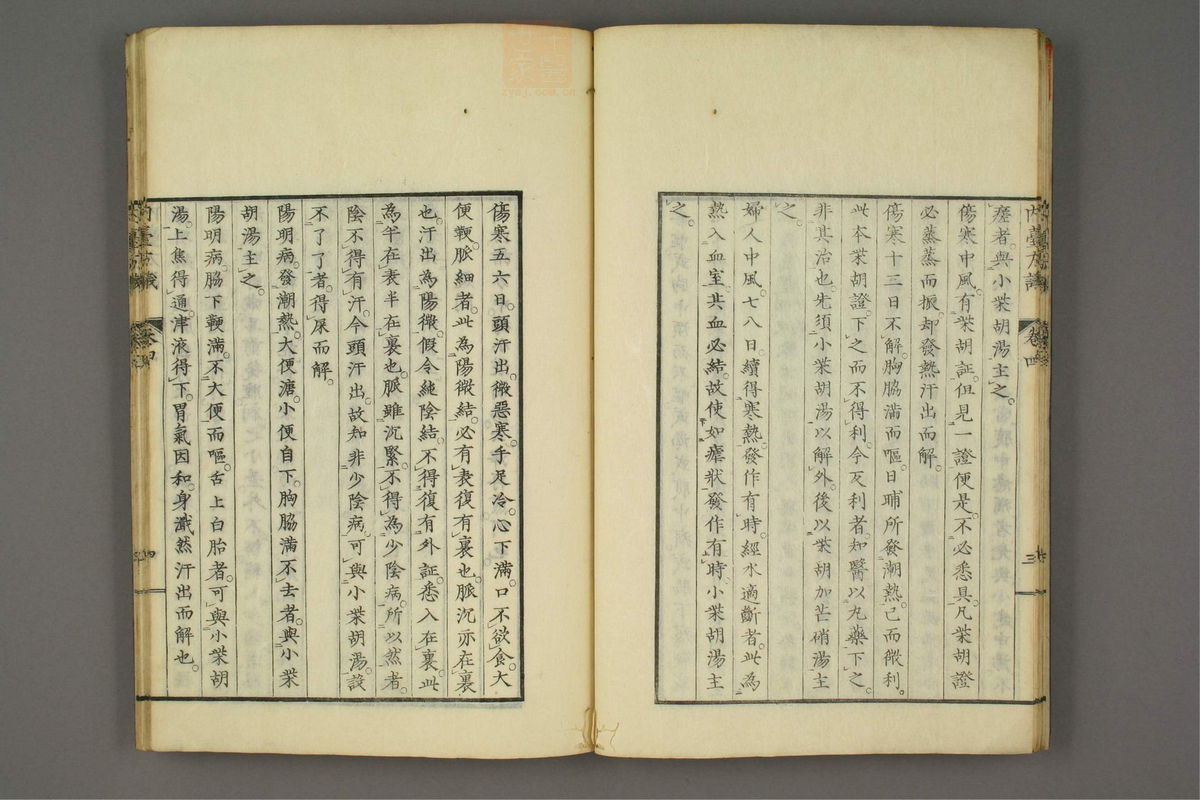 痙者。與小柴胡湯主之。
傷寒中風。有柴胡証。但見一證便是。不必悉具。凡柴胡證
必蒸蒸而振。却發熱汗出而解。
傷寒十三日不解。胸脇滿而嘔。日晡所發潮熱。已而微利。
此本柴胡證。下之而不得利。今反利者。知醫以丸藥下之。
非其治也。先須小柴胡湯以解外。後以柴胡加芒硝湯主
之。
婦人中風。七八日。續得寒熱。發作有時。經水適斷者。此為
熱入血室。其血必結。故使如瘧狀。發作有時。小柴胡湯主
之。
傷寒五六日。頭汗出。微惡寒。手足冷。心下滿。口不欲食。大
便鞕。脈細者。此為陽微結。必有表復有裏也。脈沉亦在裏
也。汗出為陽微。假令純陰結。不得復有外証。悉入在裏。此
為半在表半在裏也。脈雖沉緊。不得為少陰病。所以然者。
陰不得有汗。今頭汗出。故知非少陰病。可與小柴胡湯。設
不了了者。得屎而解。
陽明病。發潮熱。大便溏。小便自下。胸脇滿不去者。與小柴
胡湯主之。
陽明病。脇下鞕滿。不大便而嘔。舌上白胎者。可與小柴胡
湯。上焦得通。津液得下。胃氣因和。身濈然汗出而解也。
卷四
卷四
zysj.com.cn